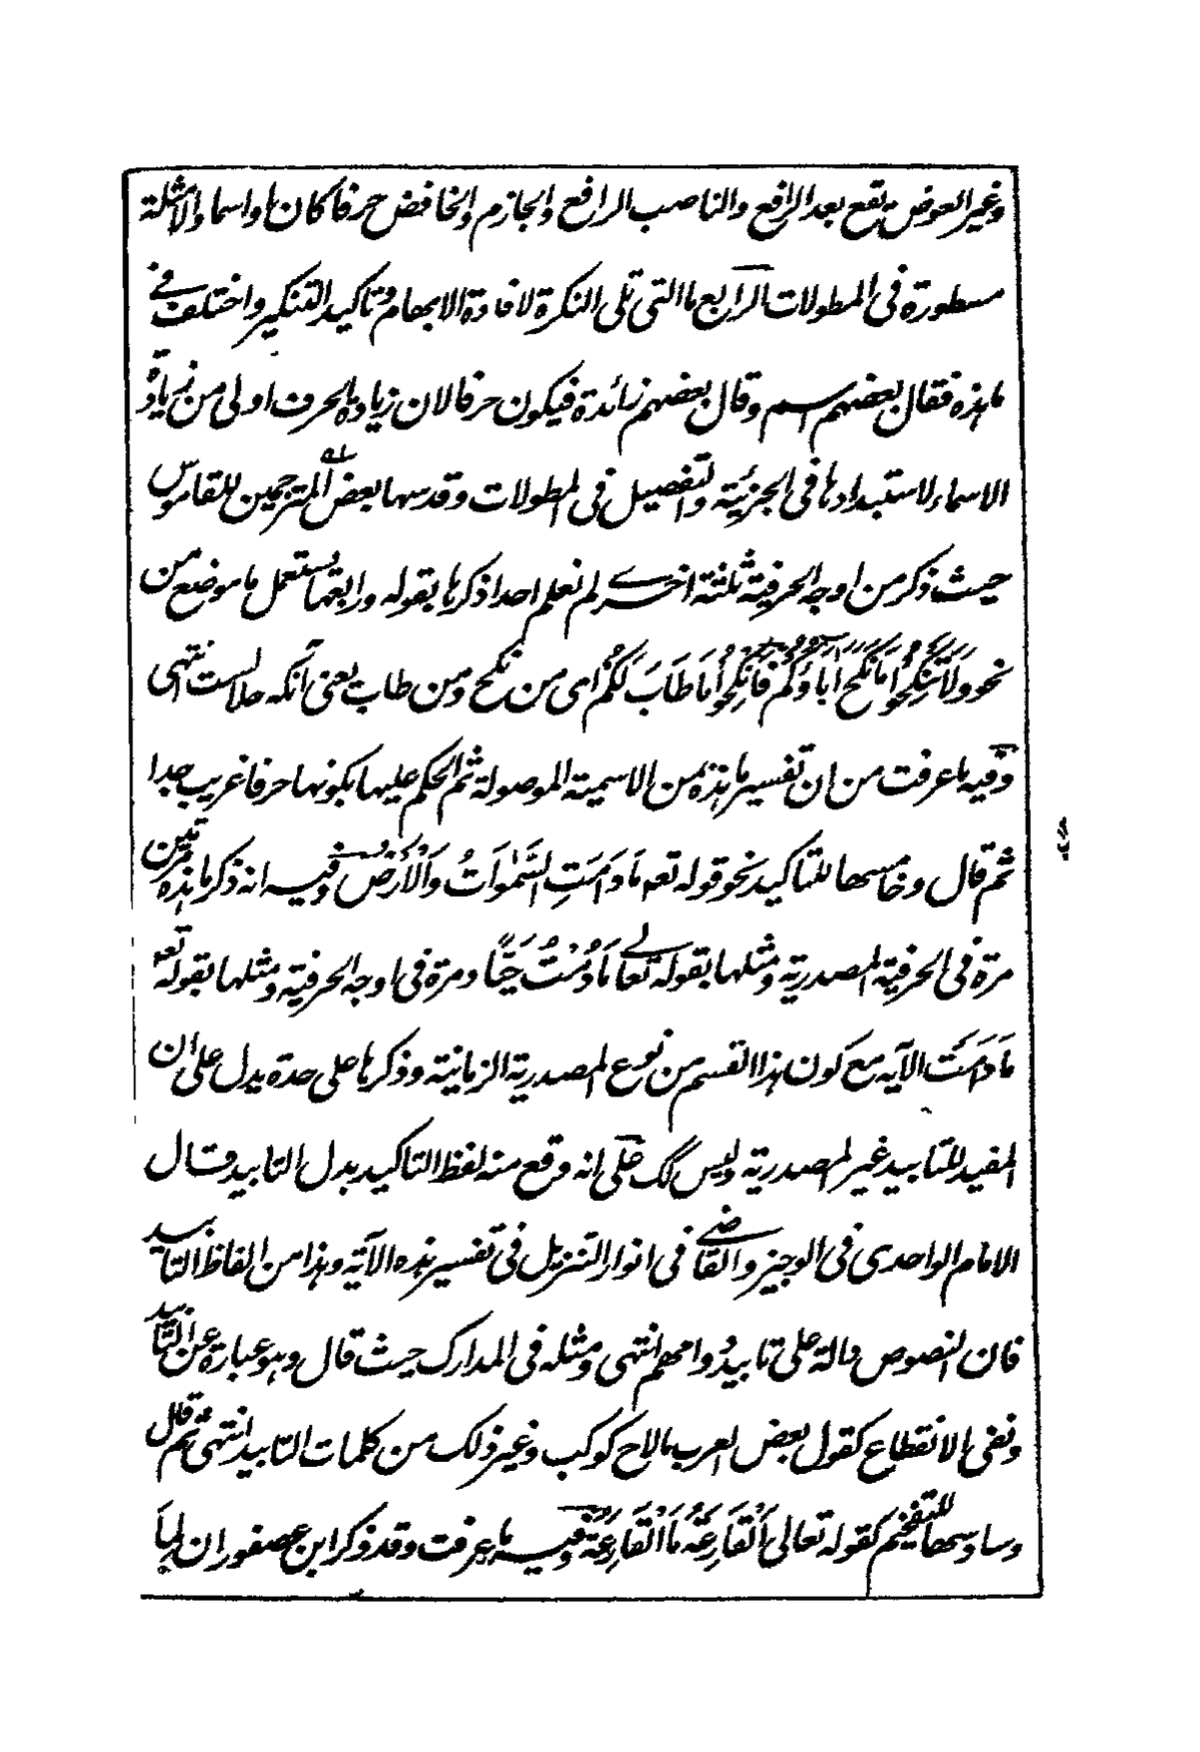 وغير العوض تقع بعد الرافع والناصب الرافع والجازم والخافض حرفا كان او اسما والامثلة
مسطورة فى المطولات الرابع ما التى تلى النكرة لافادة الابهام وتاكيد التنكير واختلف فى
ما هذه فقال بعضهم اسم وقال بعضهم زائدة فيكون حرفا لان زيادة الحرف اولى من زيادة
الاسماء لاستبدادها فى الجزئية والتفصيل فى المطولات وقد سها بعض المترجمين للقاموس
حيث ذكر من اوجه الحرفية ثلثة اخرى لم نعلم احدا ذكرها بقوله ورابعها تستعمل ما موضع من
نحو وَلَا تَنْكِحُوا مَا نَكَحَ آبَاؤُكُمْ فَانْكِحُوا مَا طَابَ لَكُمْ اى من نكح ومن طاب يعنى آنكه حلالست انتهى
وفيه ما عرفت من ان تفسير ما هذه بمن الاسمية الموصولة ثم الحكم عليها بكونها حرفا غريب جدا
ثم قال وخامسها للتاكيد نحو قوله تعه مَا دَامَتِ السَّمٰوَاتُ وَالْأَرْضُ وفيه انه ذكر ما هذه مرتين
مرة فى الحرفية المصدرية ومثلها بقوله تعالى مَا دُمْتُ حَيًّا ومرة فى اوجه الحرفية ومثلها بقوله تعه
مَا دَامَتْ الآية مع كون هذا القسم من نوع المصدرية الزمانية وذكرها على حدة يدل على ان
المفيد للتابيد غير المصدرية وليس كك على انه وقع منه لفظ التاكيد بدل التابيد وقال
الامام الواحدى فى الوجيز والقاضى فى انوار التنزيل فى تفسير هذه الآية وهذا من الفاظ التابيد
فان النصوص دالة على تابيد دوامهم انتهى ومثله فى المدارك حيث قال وهو عبارة عن التابيد
ونفى الانقطاع كقول بعض العرب ما لاح كوكب وغير ذلك من كلمات التابيد انتهى ثم قال
وسادسها للتفخيم كقوله تعالى اَلْقَارِعَةُ مَا الْقَارِعَةُ وفيه ما عرفت وقد ذكر ابن عصفور ان لها